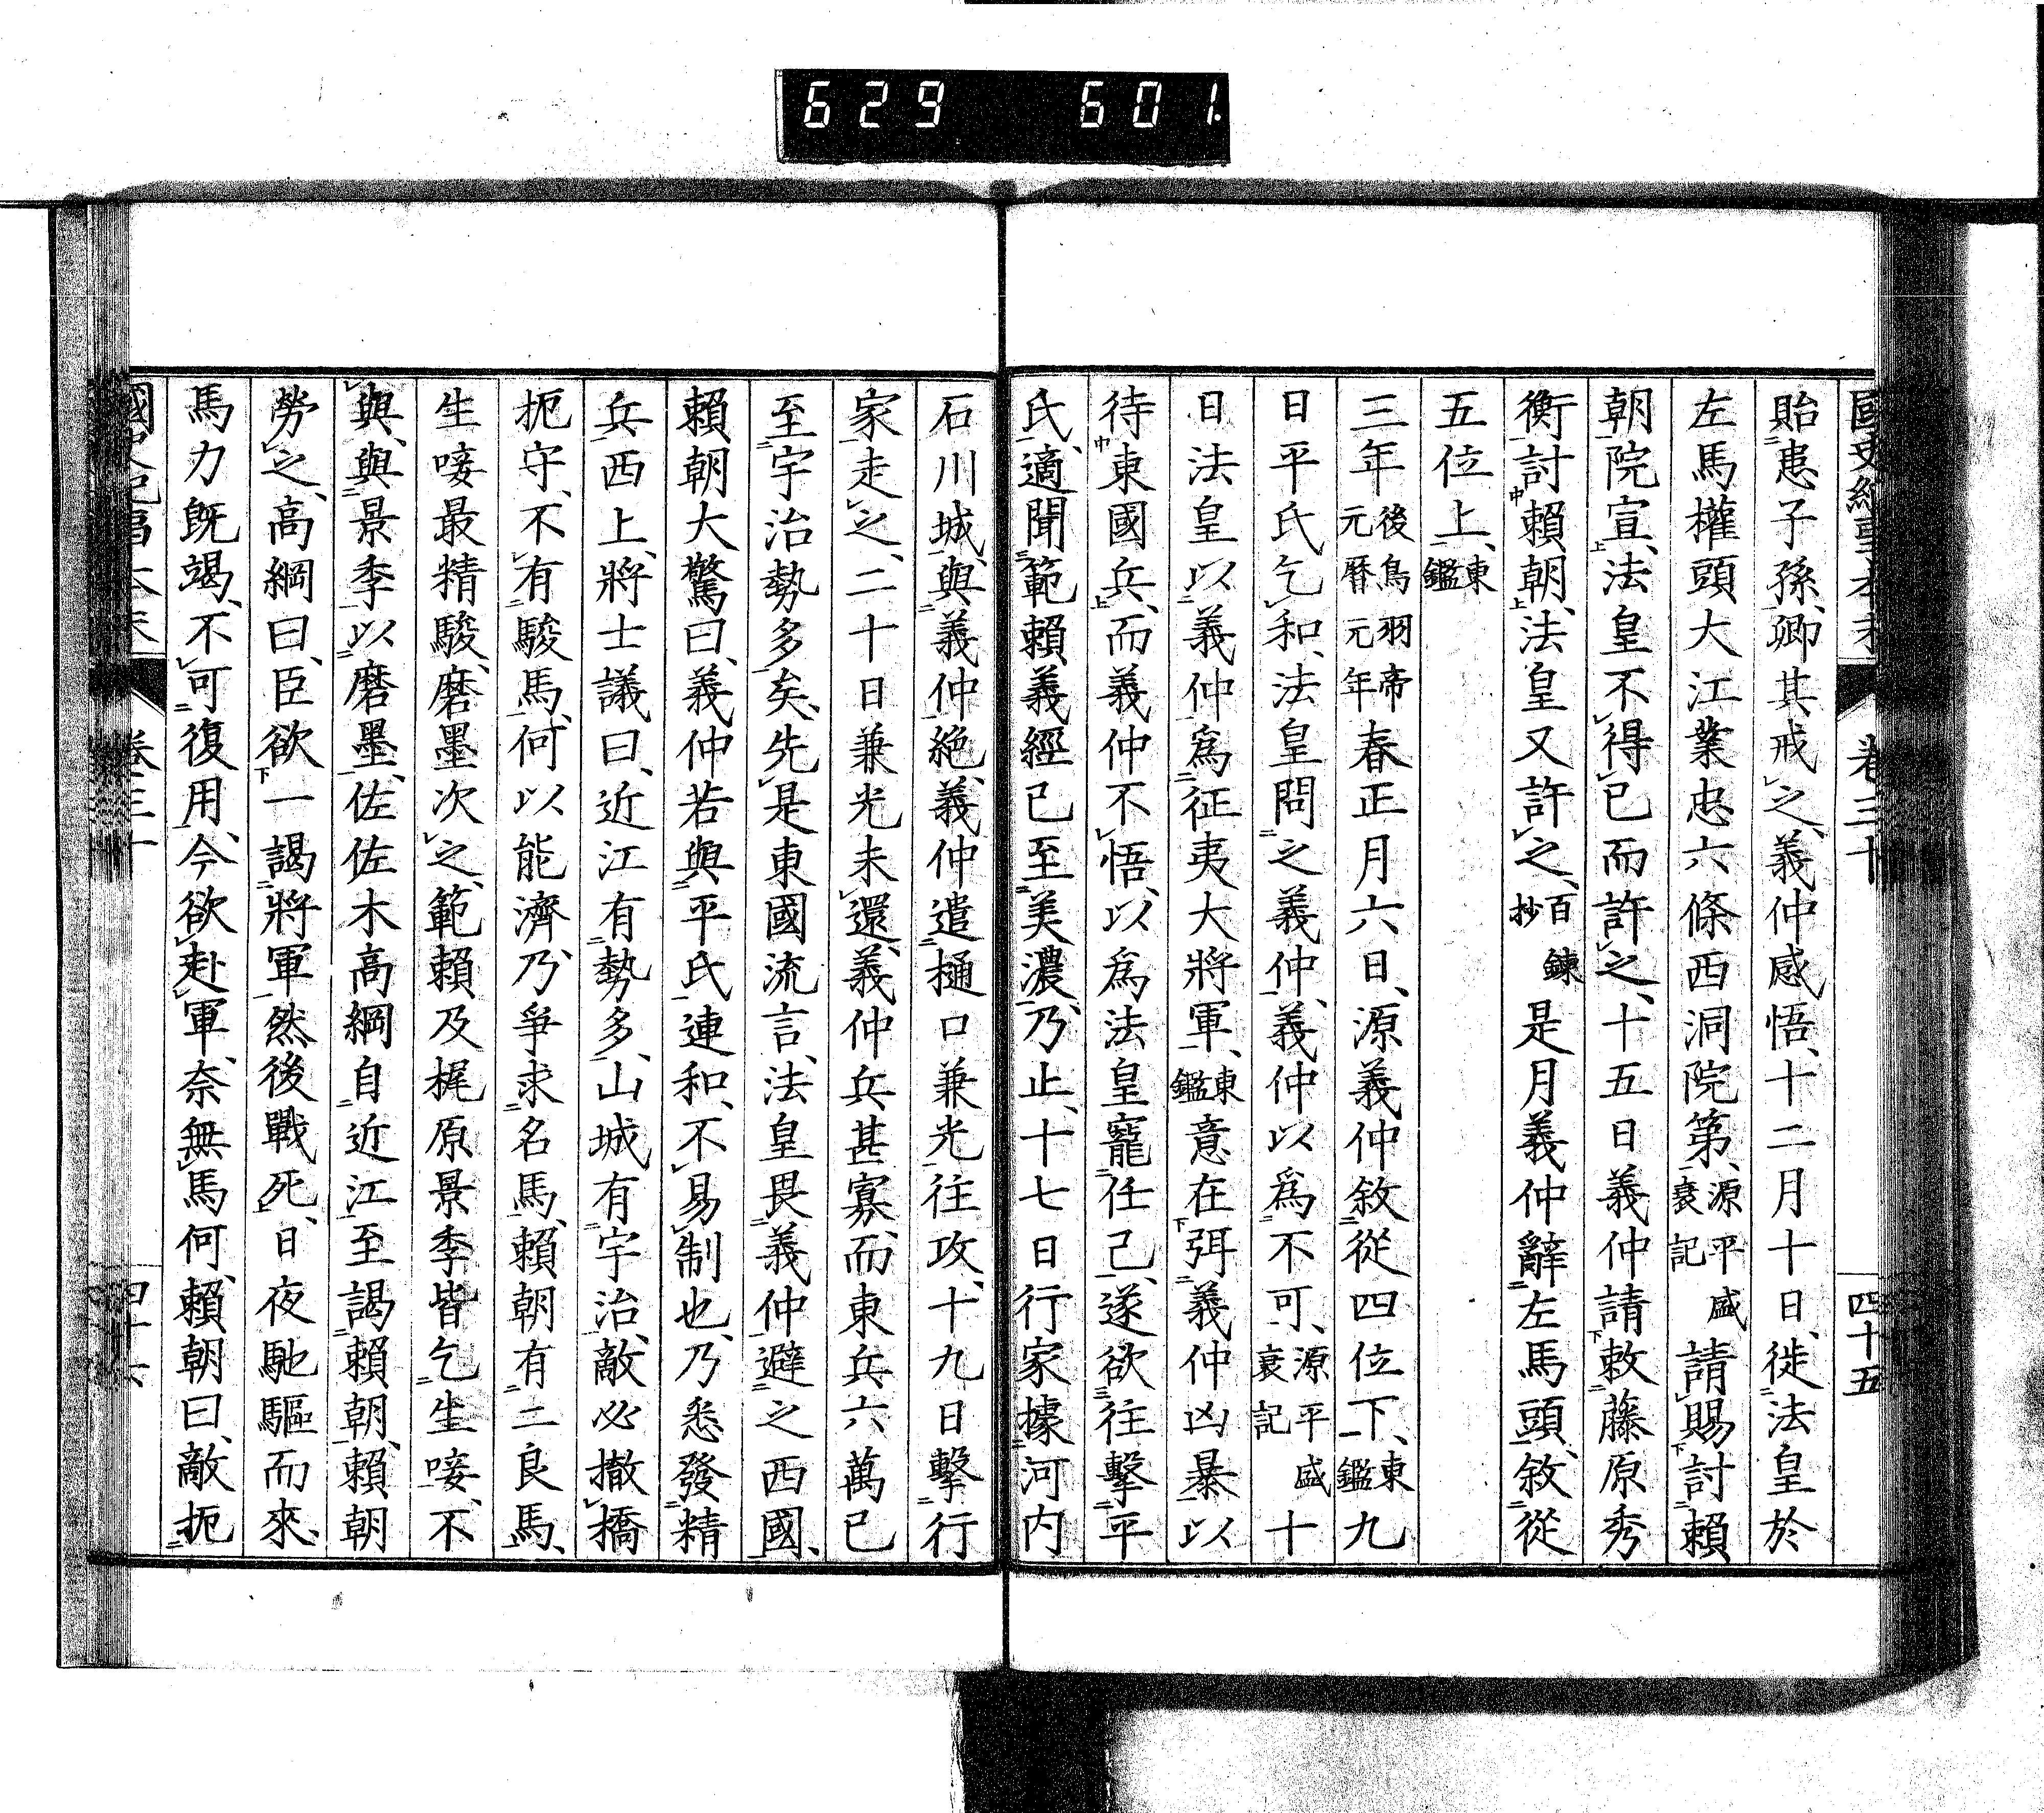 629 601.
卷三十
四十五
貽患子孫、卿其戒之、義仲感悟、十二月十日、徙法皇於
左馬權頭大江業忠六條西洞院第、源平盛衰記請賜討賴
朝院宣、法皇不得已而許之、十五日義仲請敕藤原秀
衡討賴朝、法皇又許之、百鍊抄是月義仲辭左馬頭、敘從
五位上、東鑑
三年後鳥羽帝元曆元年春正月六日、源義仲敘從四位下、東鑑九
日平氏乞和、法皇問之義仲、義仲以爲不可、源平盛衰記十
日法皇以義仲爲征夷大將軍、東鑑意在弭義仲凶暴以
待東國兵、而義仲不悟、以爲法皇寵任己、遂欲往擊平
氏、適聞範賴義經已至美濃、乃止、十七日行家據河内
石川城、與義仲絶、義仲遣樋口兼光往攻、十九日擊行
家走之、二十日兼光未還、義仲兵甚寡、而東兵六萬已
至宇治勢多矣、先是東國流言、法皇畏義仲避之西國、
賴朝大驚曰、義仲若與平氏連和、不易制也、乃悉發精
兵西上、將士議曰、近江有勢多、山城有宇治、敵必撤橋
扼守、不有駿馬、何以能濟、乃爭求名馬、賴朝有二良馬、
生唼最精駿、磨墨次之、範賴及梶原景季皆乞生唼、不
與、與景季以磨墨、佐佐木高綱自近江至謁賴朝、賴朝
勞之、高綱曰、臣欲一謁將軍然後戰死、日夜馳驅而來、
馬力既竭、不可復用、今欲赴軍、奈無馬何、賴朝曰、敵扼